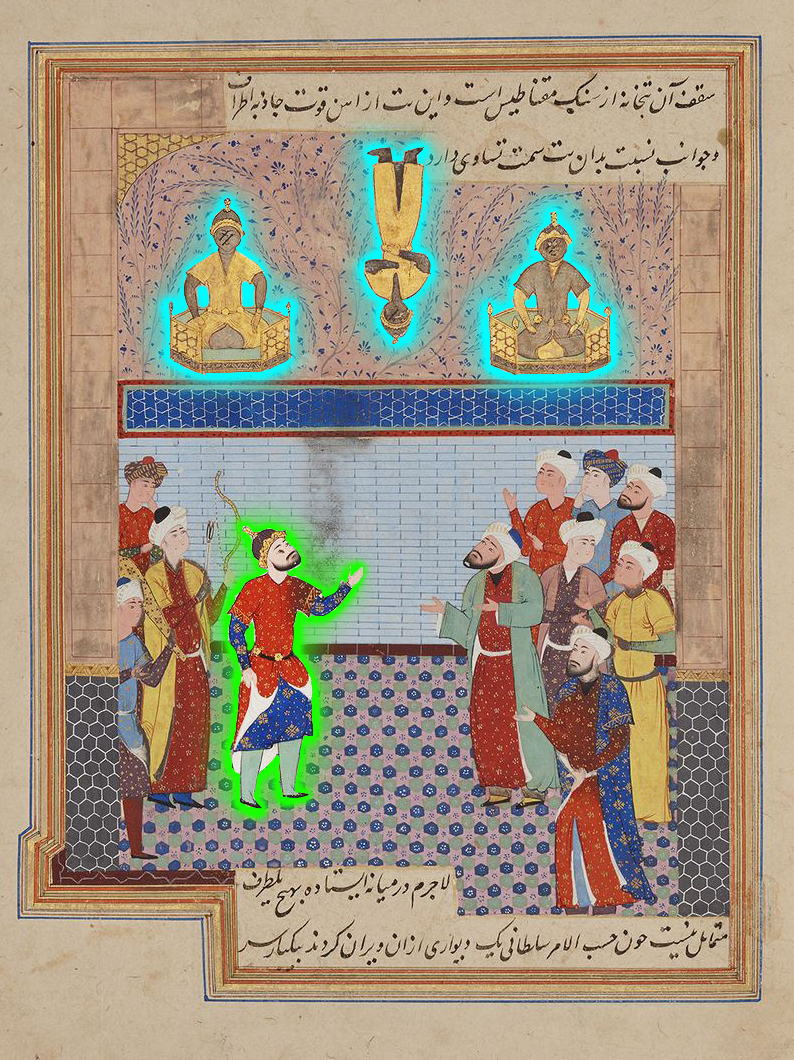 سقف آن بتخانه از سنک مقناطیس است و این بت از اهن قوت جاذبه اطراف
و جوانب نسبت بدان بت سمت تساوی دارد
لاجرم در میانه ایستاده بهیچ طرف
متمایل نیست چون حسب الامر سلطانی یک دیواری ازان ویران کردند بیکبار سر